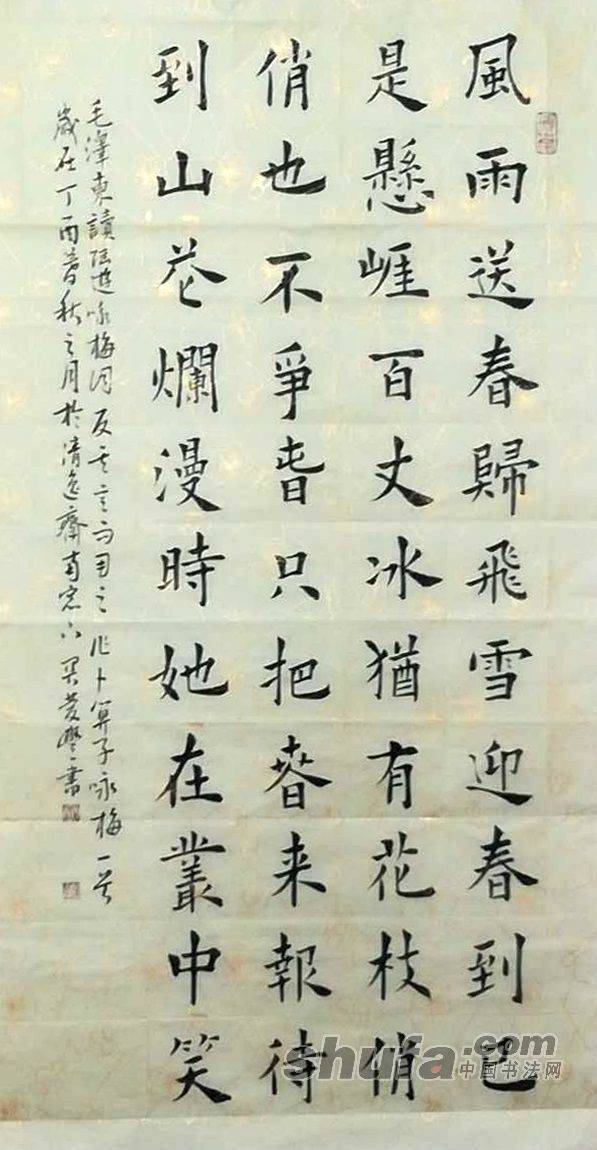 風雨送春歸飛雪迎春到已
是懸崖百丈冰猶有花枝俏
俏也不爭春只把春来報待
到山花爛漫時她在叢中笑
毛澤東讀陸遊咏梅词反其意而用之作卜算子咏梅一首
歲在丁酉暮秋之月於清逸齋南窓下吴慶學书
shufa.com
中国书法网